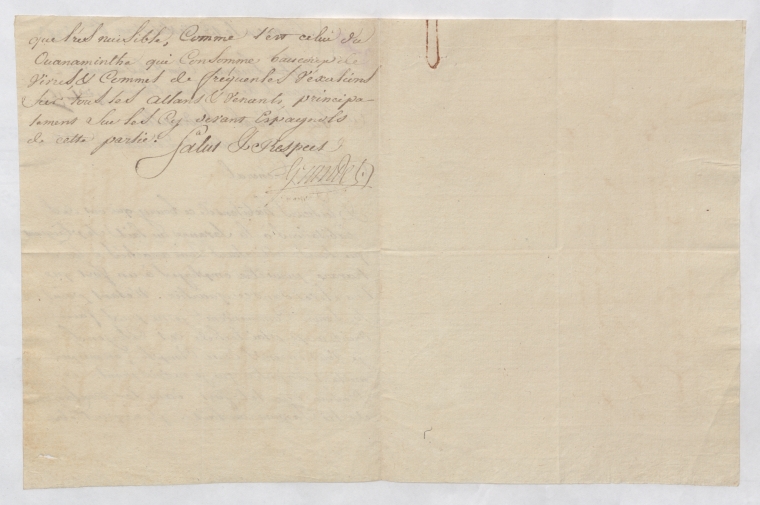 que très nuisible, Comme l'est celui du
Ouanaminthe qui Consomme beaucoup de
Vivres & Commet de fréquentes Vexations
sur tous les allans & Venants, principa-
lement sur les Cy devant Espagnols
de cette partie.
Salut & Respect